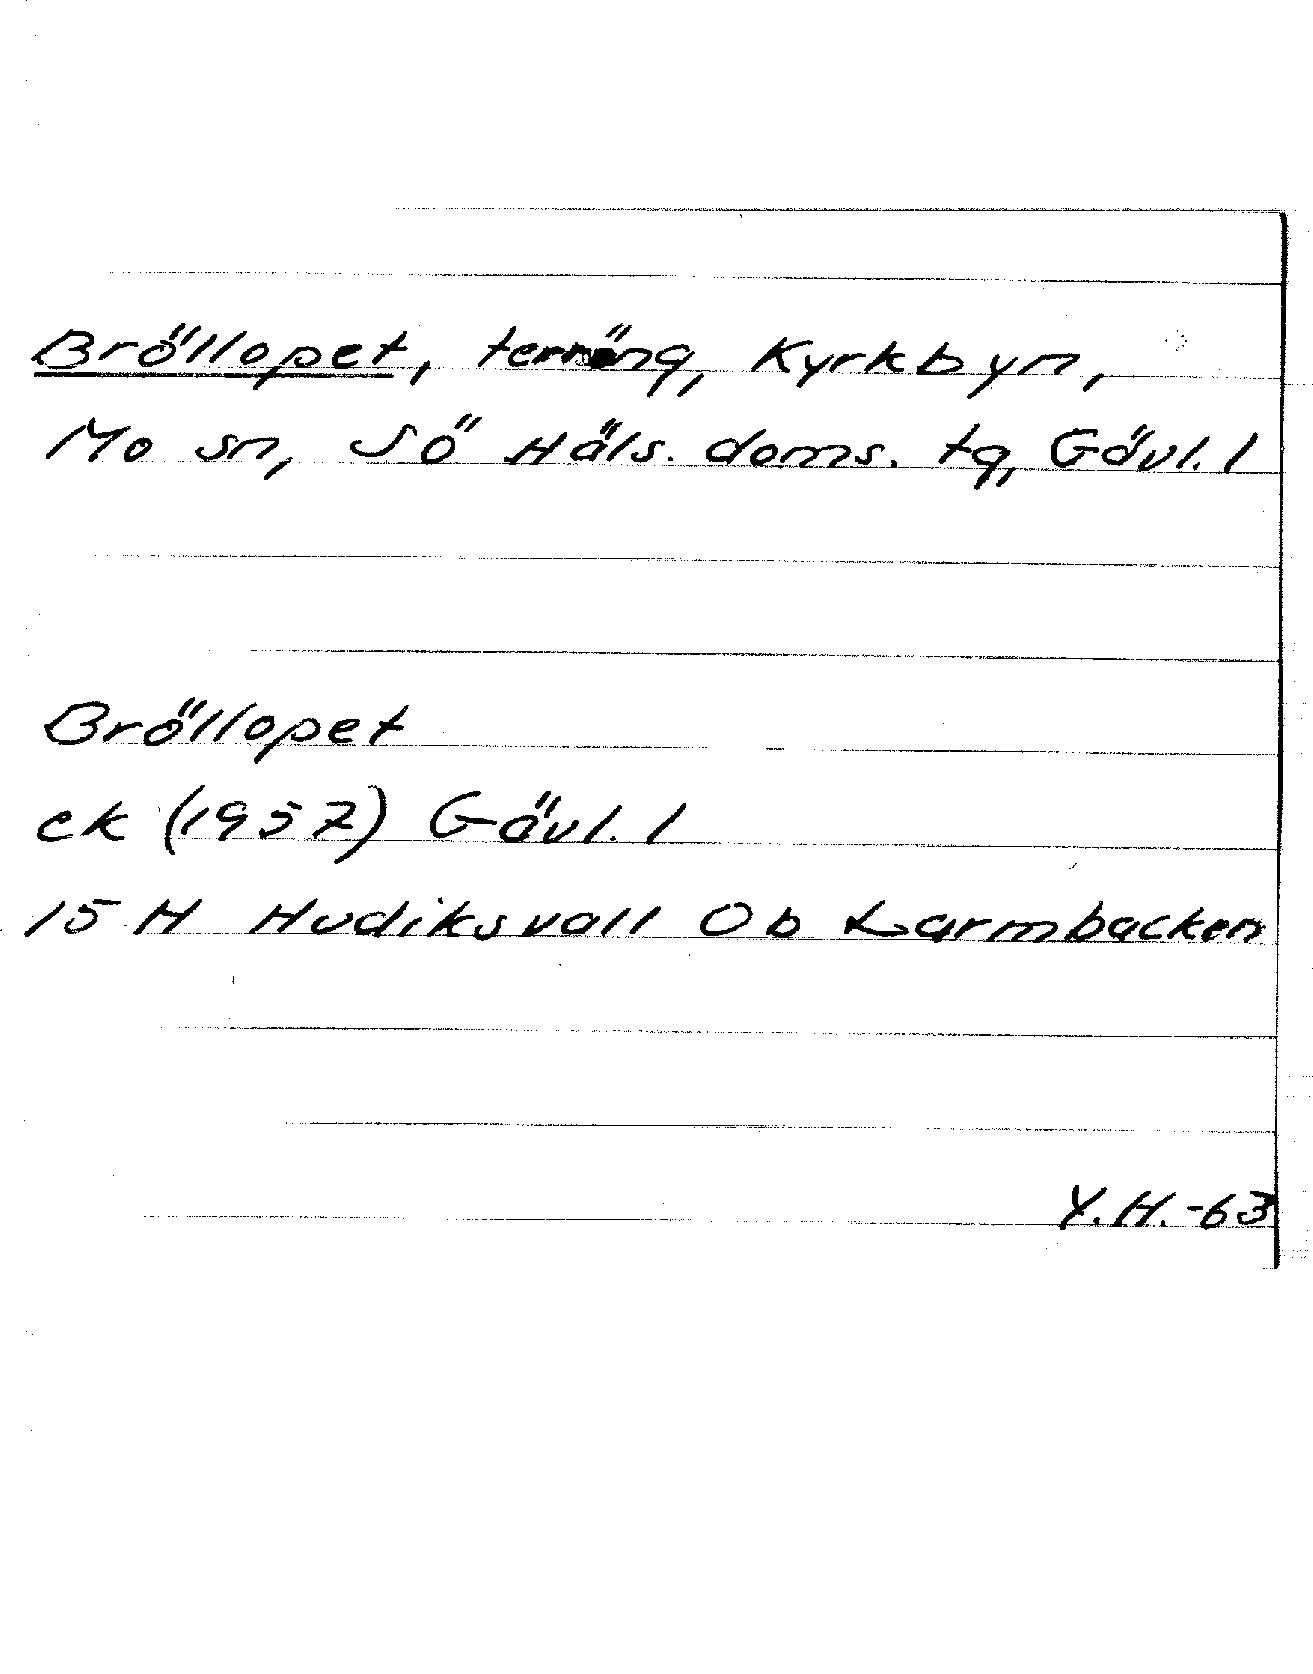 Bröllopet, terräng, Kyrkbyn,
Mo sn, Sö Häls. doms. tg, Gävl. l
Bröllopet
ek (1957) Gävl. l
15 H Hudiksvall Ob Larmbacken
Y.H.-63